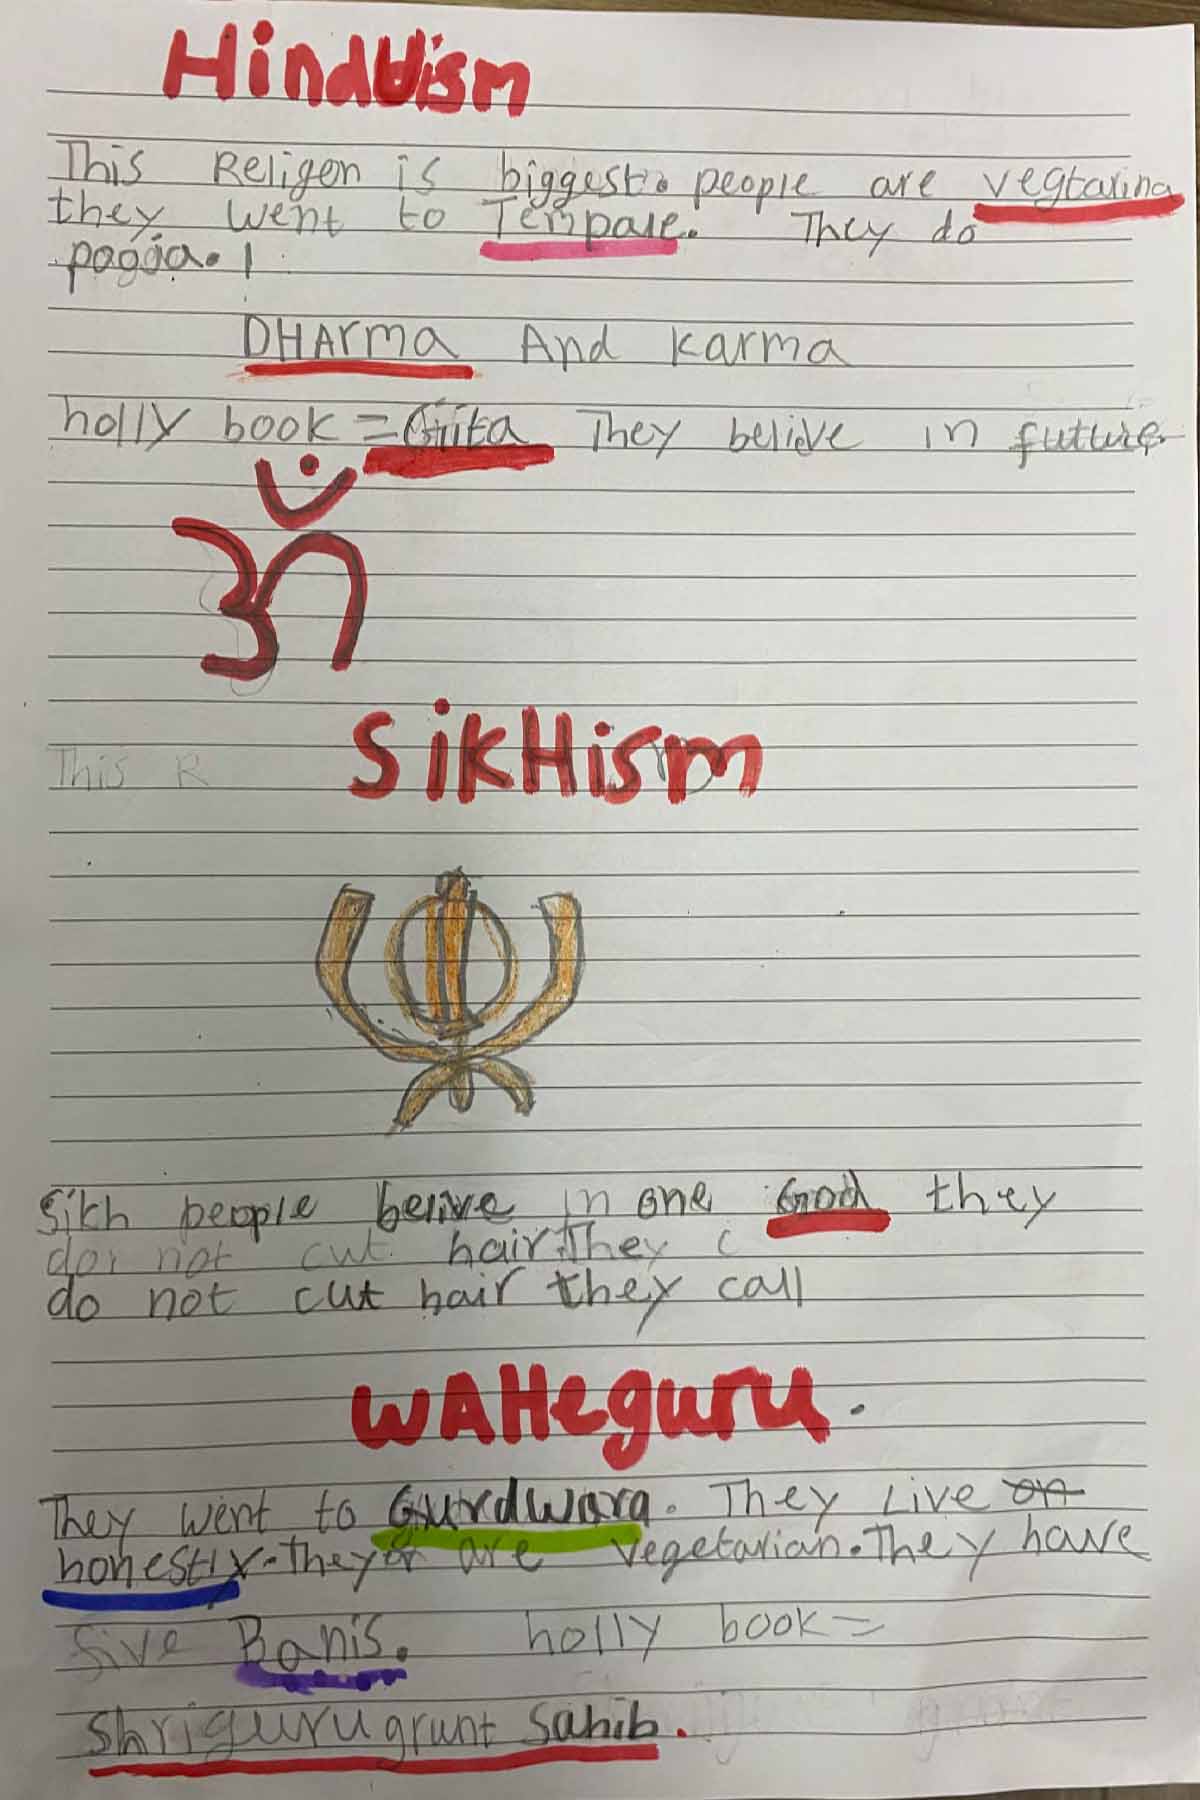 Hinduism
This Religen is biggest. people are vegtarina
they went to Tempale. They do
pogja.
DHArma And karma
holly book = Gita They belive in future
ॐ
SikHism
This R
Sikh people belive in one God they
do not cut hair. They c
do not cut hair they call
WAHeguru.
They went to Gurdwara. They Live on
honestly. They are vegetarian. They have
five Banis. holly book =
Shriguru grunt Sahib.